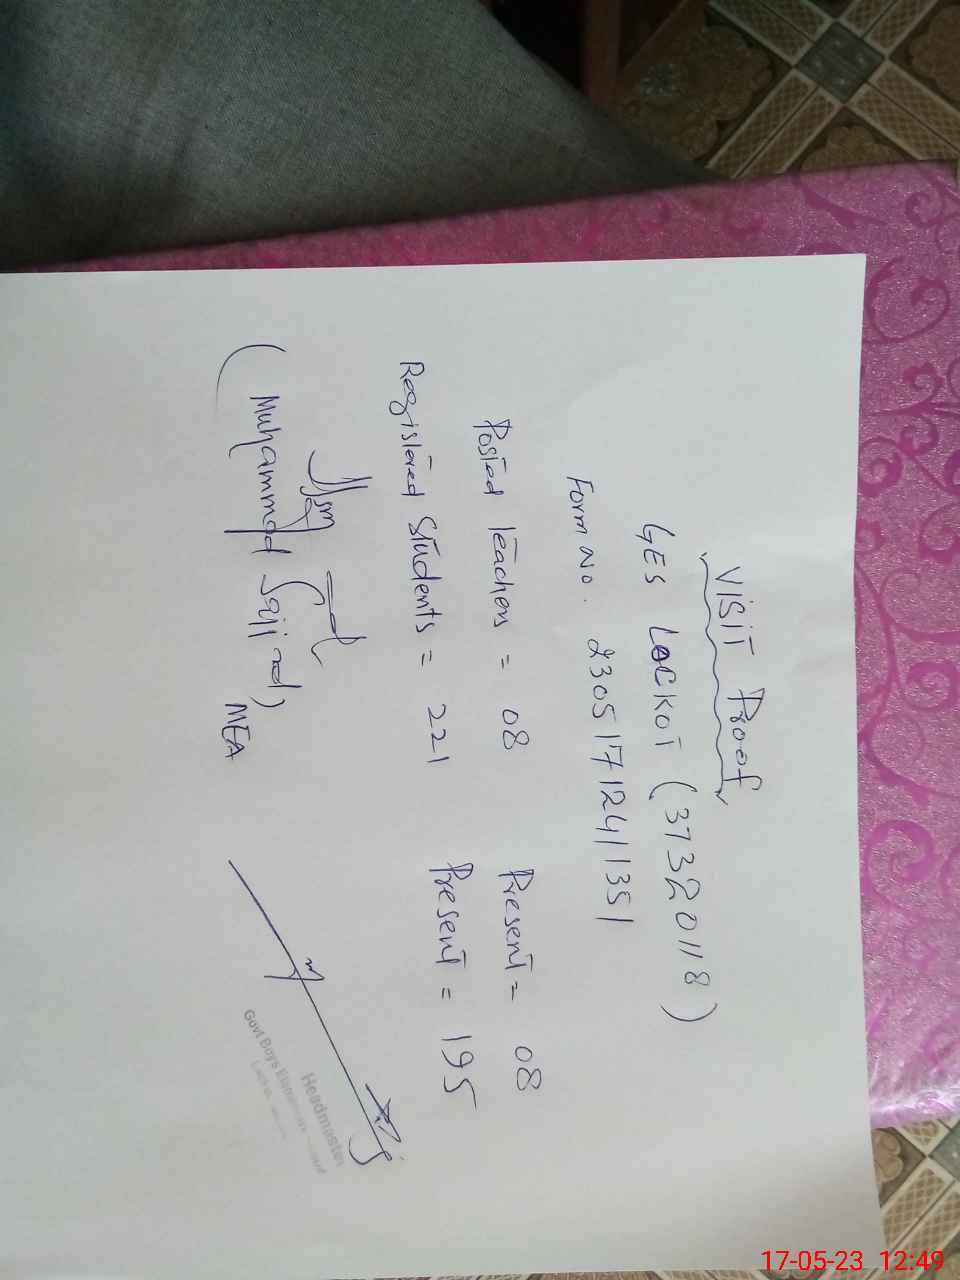 Visit Proof
GES LOCKOT (37320118)
Form No. 230517124411351
Posted Teachers = 08 Present = 08
Registered Students = 221 Present = 195
(Muhammad Sajjad)
MEA
Headmaster
Govt Boys Elementary
17-05-23 12:49